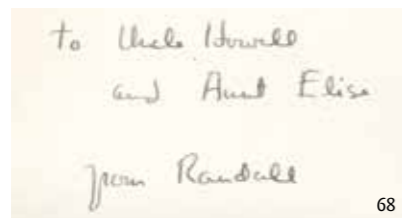 to Uncle Howell
and Aunt Elise
from Randall
68